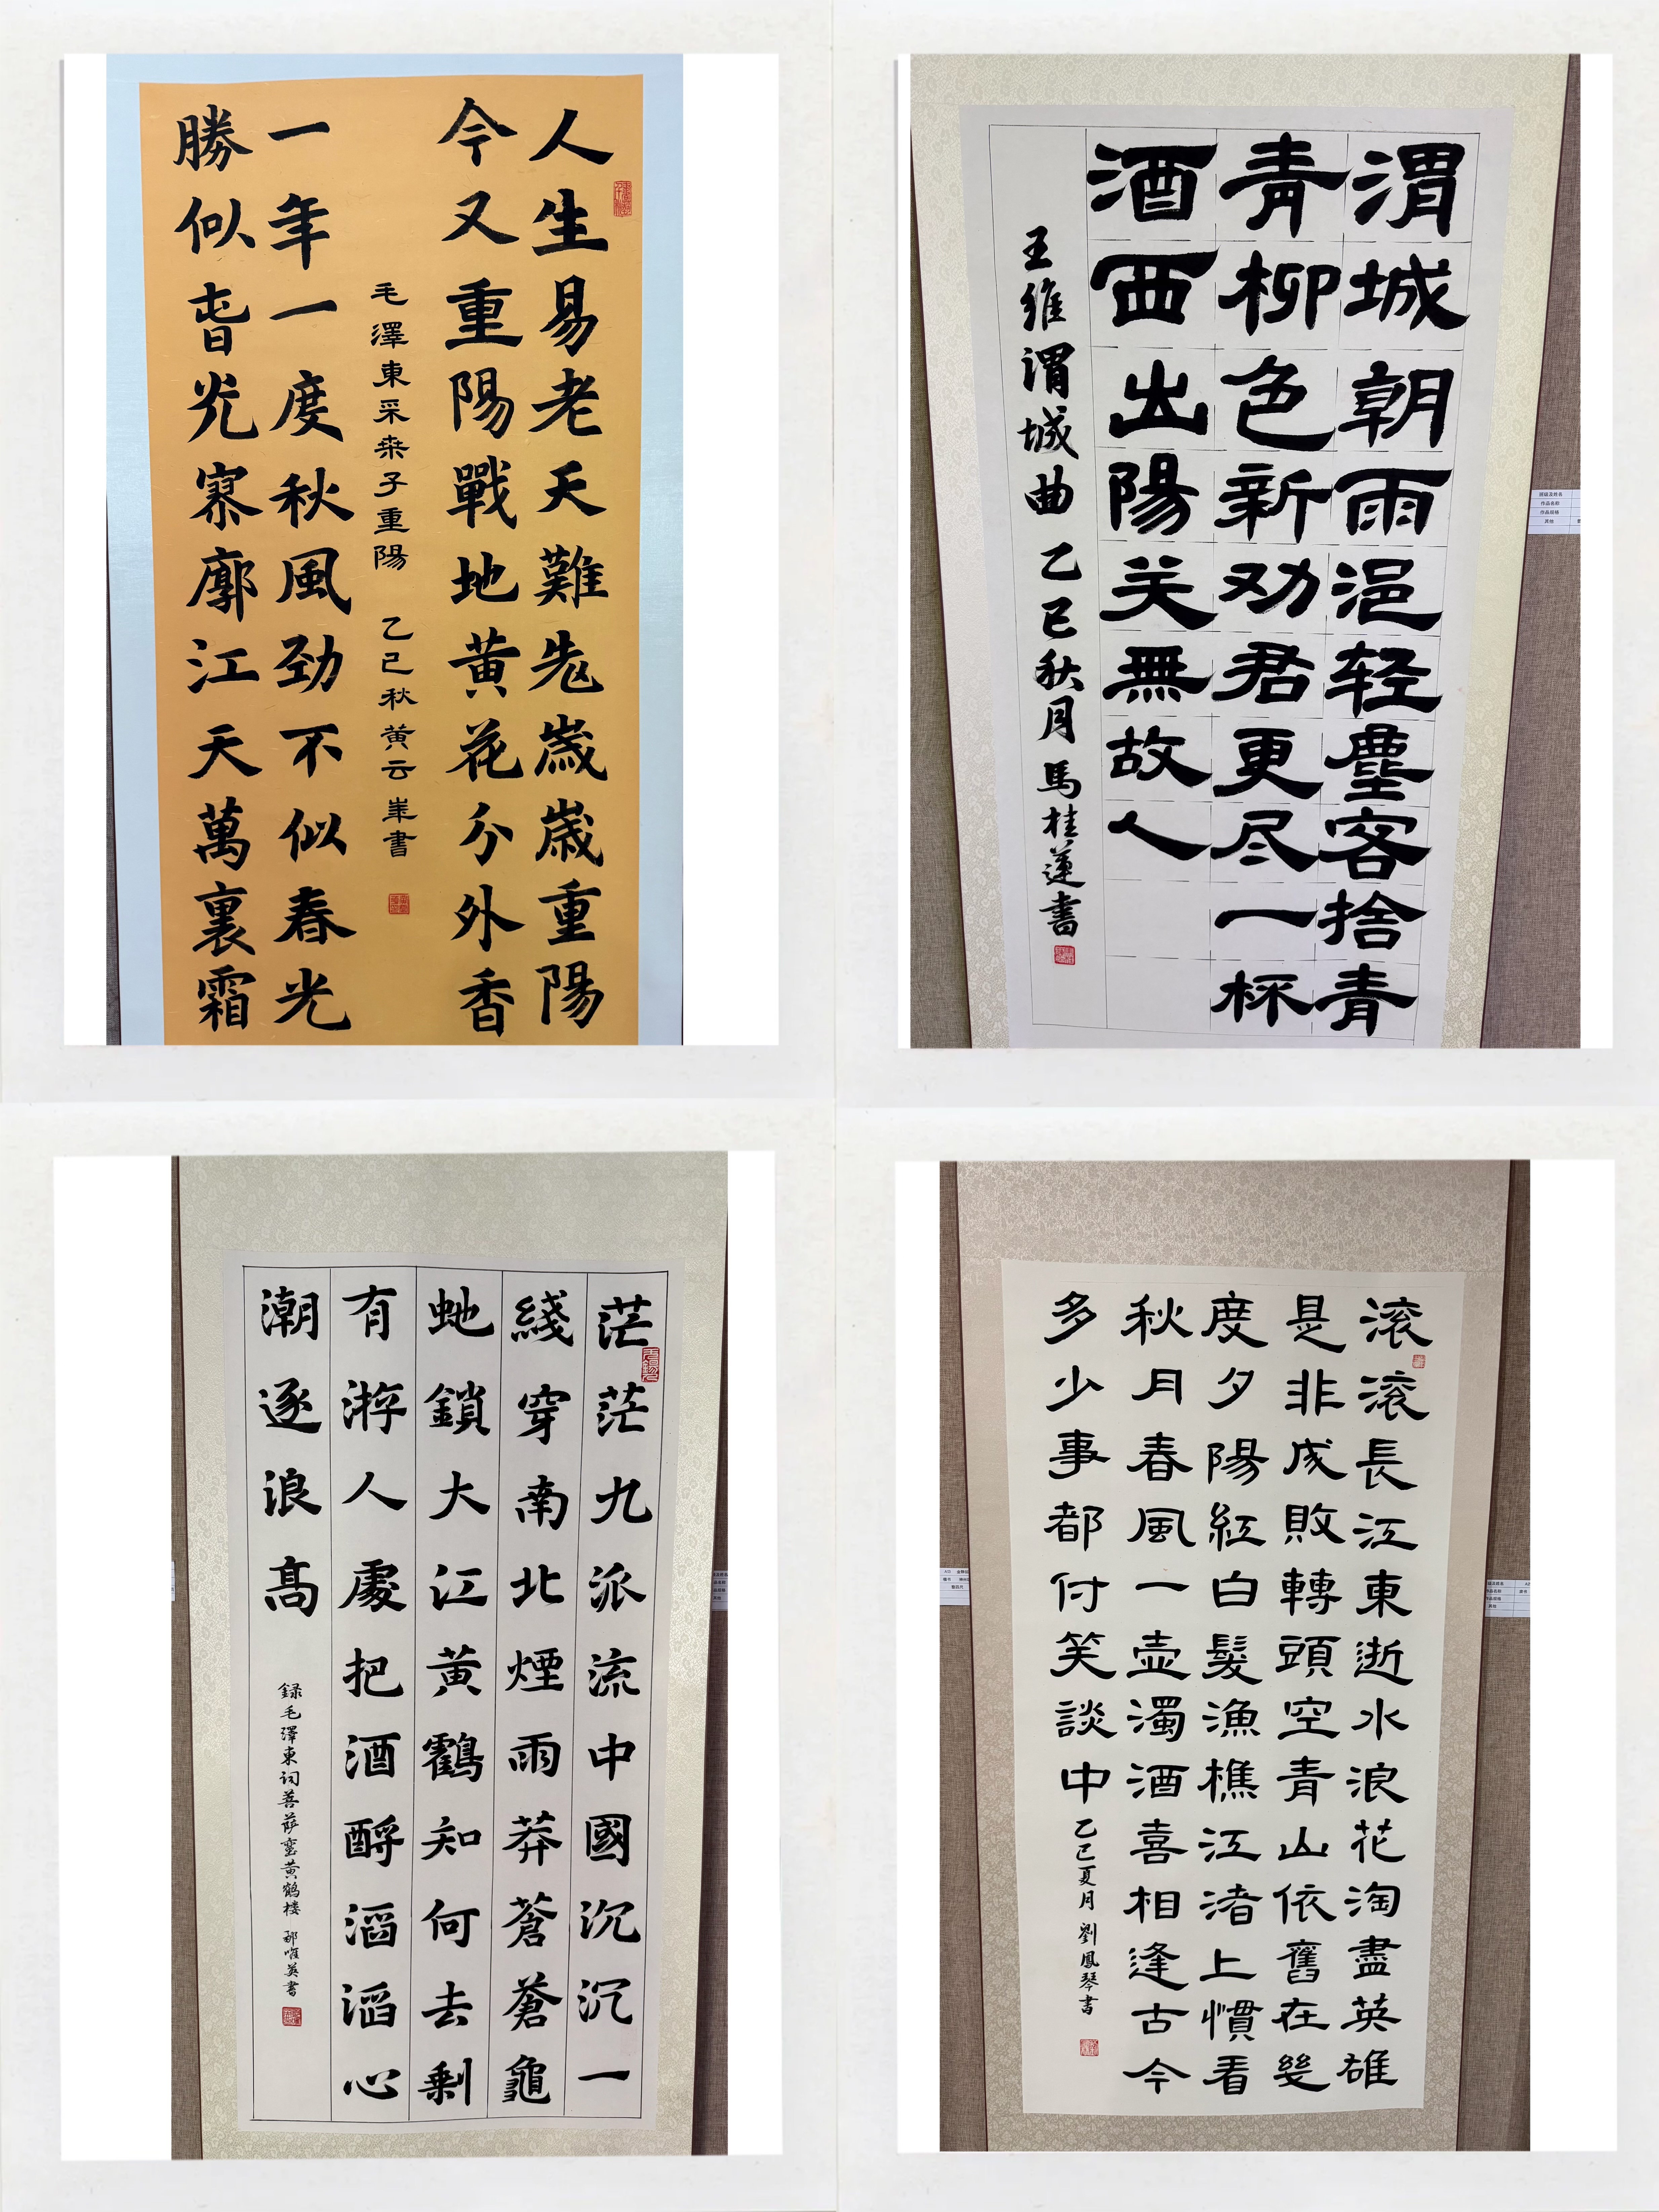 人生易老天難老歲歲重陽
今又重陽戰地黄花分外香
毛澤東采桒子重陽 乙己秋黄云峯書
一年一度秋風劲不似春光
勝似旾光寥廓江天萬裏霜
渭城朝雨浥轻塵客捨青
青柳色新劝君更尽一杯
酒西出陽关無故人
王維渭城曲 乙巳秋月 馬桂蓮書
茫茫九派流中國沉沉一
綫穿南北煙雨莽蒼蒼龜
虵鎖大江黄鶴知何去剩
有游人處把酒酹滔滔心
潮逐浪高
録毛澤東词菩萨蛮黄鹤楼 郗唯英書
滚滚長江東逝水浪花淘盡英雄
是非成敗轉頭空青山依舊在幾
度夕陽紅白髮漁樵江渚上慣看
秋月春風一壶濁酒喜相逢古今
多少事都付笑談中
乙巳夏月 劉鳳琴書
作品名称
作品规格
其他